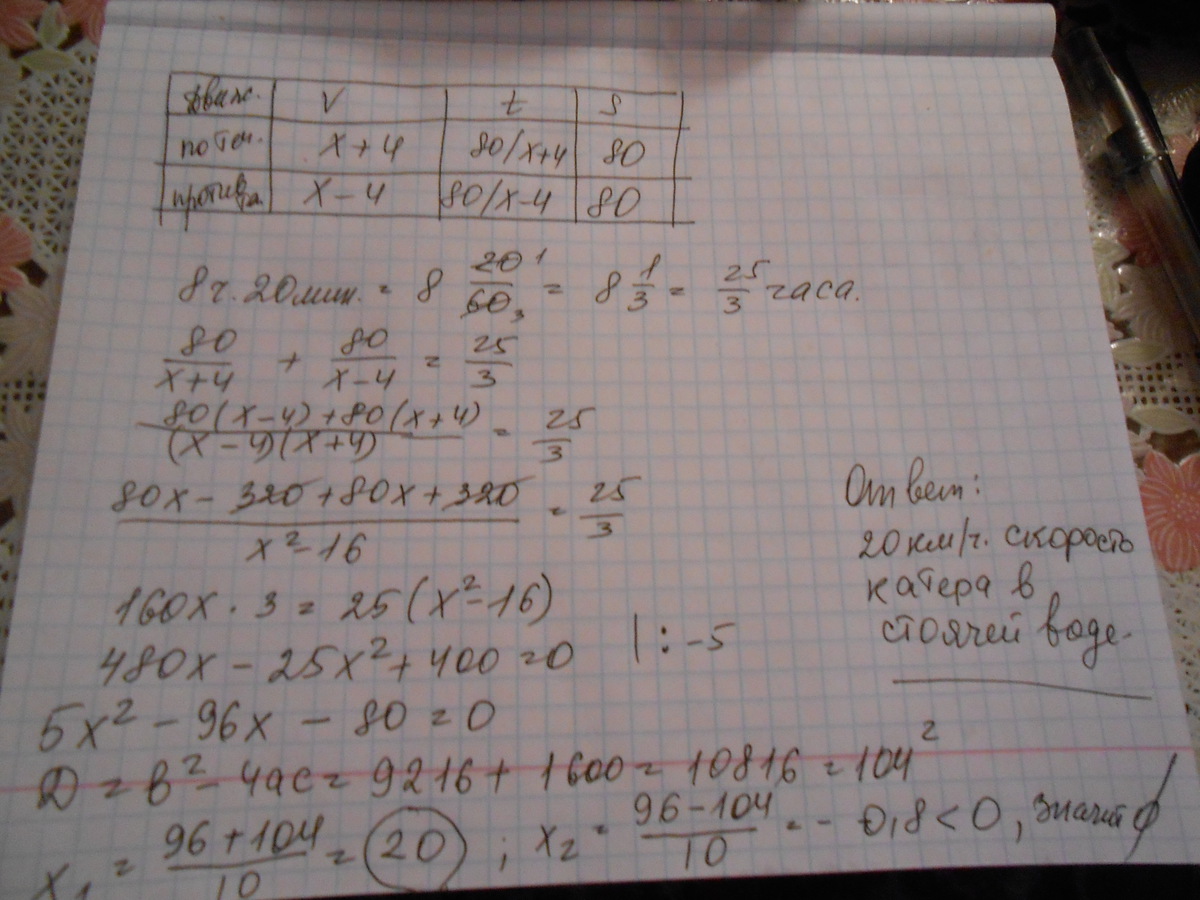 движ. V t S
по теч. x+4 80/x+4 80
против теч. x-4 80/x-4 80
8ч. 20мин. = 8 20/60 1 3 = 8 1/3 = 25/3 часа.
80/x+4 + 80/x-4 = 25/3
80(x-4)+80(x+4)/(x-4)(x+4) = 25/3
80x-320+80x+320/x²-16 = 25/3
160x · 3 = 25(x²-16)
480x - 25x² + 400 = 0 | : -5
5x² - 96x - 80 = 0
D = в² - 4ac = 9216 + 1600 = 10816 = 104²
x₁ = 96+104/10 = 20 ; x₂ = 96-104/10 = -0,8 < 0, значит ∅
Ответ:
20 км/ч. скорость
катера в
стоячей воде.